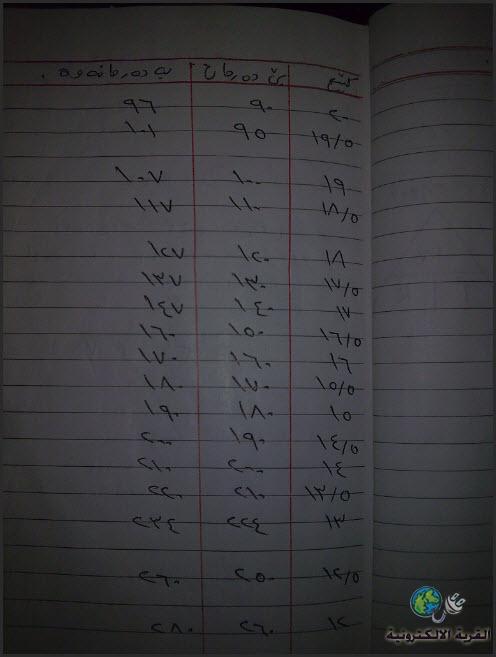 ٢٠ ٩٠ ٩٦
١٩/٥ ٩٥ ١٠١
١٩ ١٠٠ ١٠٧
١٨/٥ ١١٠ ١١٧
١٨ ١٢٠ ١٢٧
١٧/٥ ١٣٠ ١٣٧
١٧ ١٤٠ ١٤٧
١٦/٥ ١٥٠ ١٦٠
١٦ ١٦٠ ١٧٠
١٥/٥ ١٧٠ ١٨٠
١٥ ١٨٠ ١٩٠
١٤/٥ ١٩٠ ٢٠٠
١٤ ٢٠٠ ٢١٠
١٣/٥ ٢١٠ ٢٢٠
١٣ ٢٢٤ ٢٣٤
١٢/٥ ٢٥٠ ٢٦٠
١٢ ٢٦٠ ٢٨٠
القرية الالكترونية